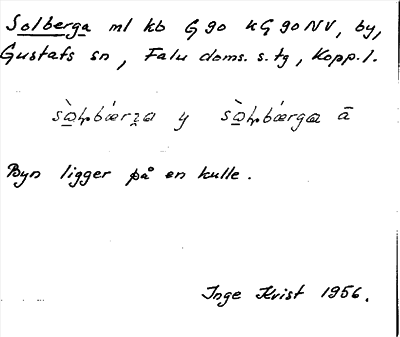 Solberga ml kb G 90 kG 90 NV, by,
Gustafs sn, Falu doms. s. tg, Kopp. l.
y ā
Byn ligger på en kulle.
Inge Kvist 1956.